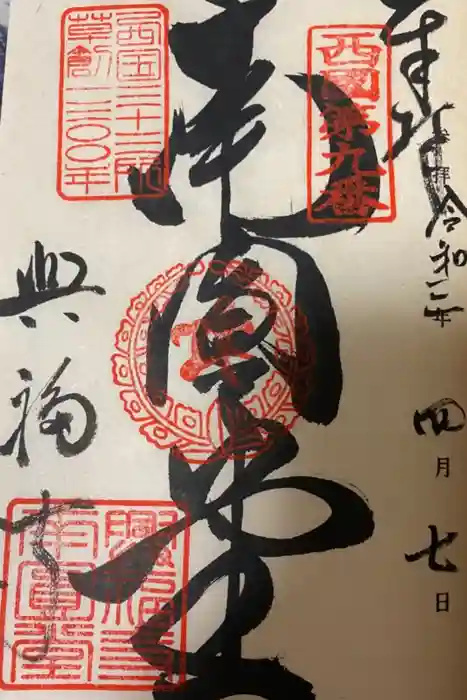 奉拝
令和二年
四月七日
西國第九番
南圓堂
西国三十三所
草創一三〇〇年
興福寺
興福寺
南圓堂